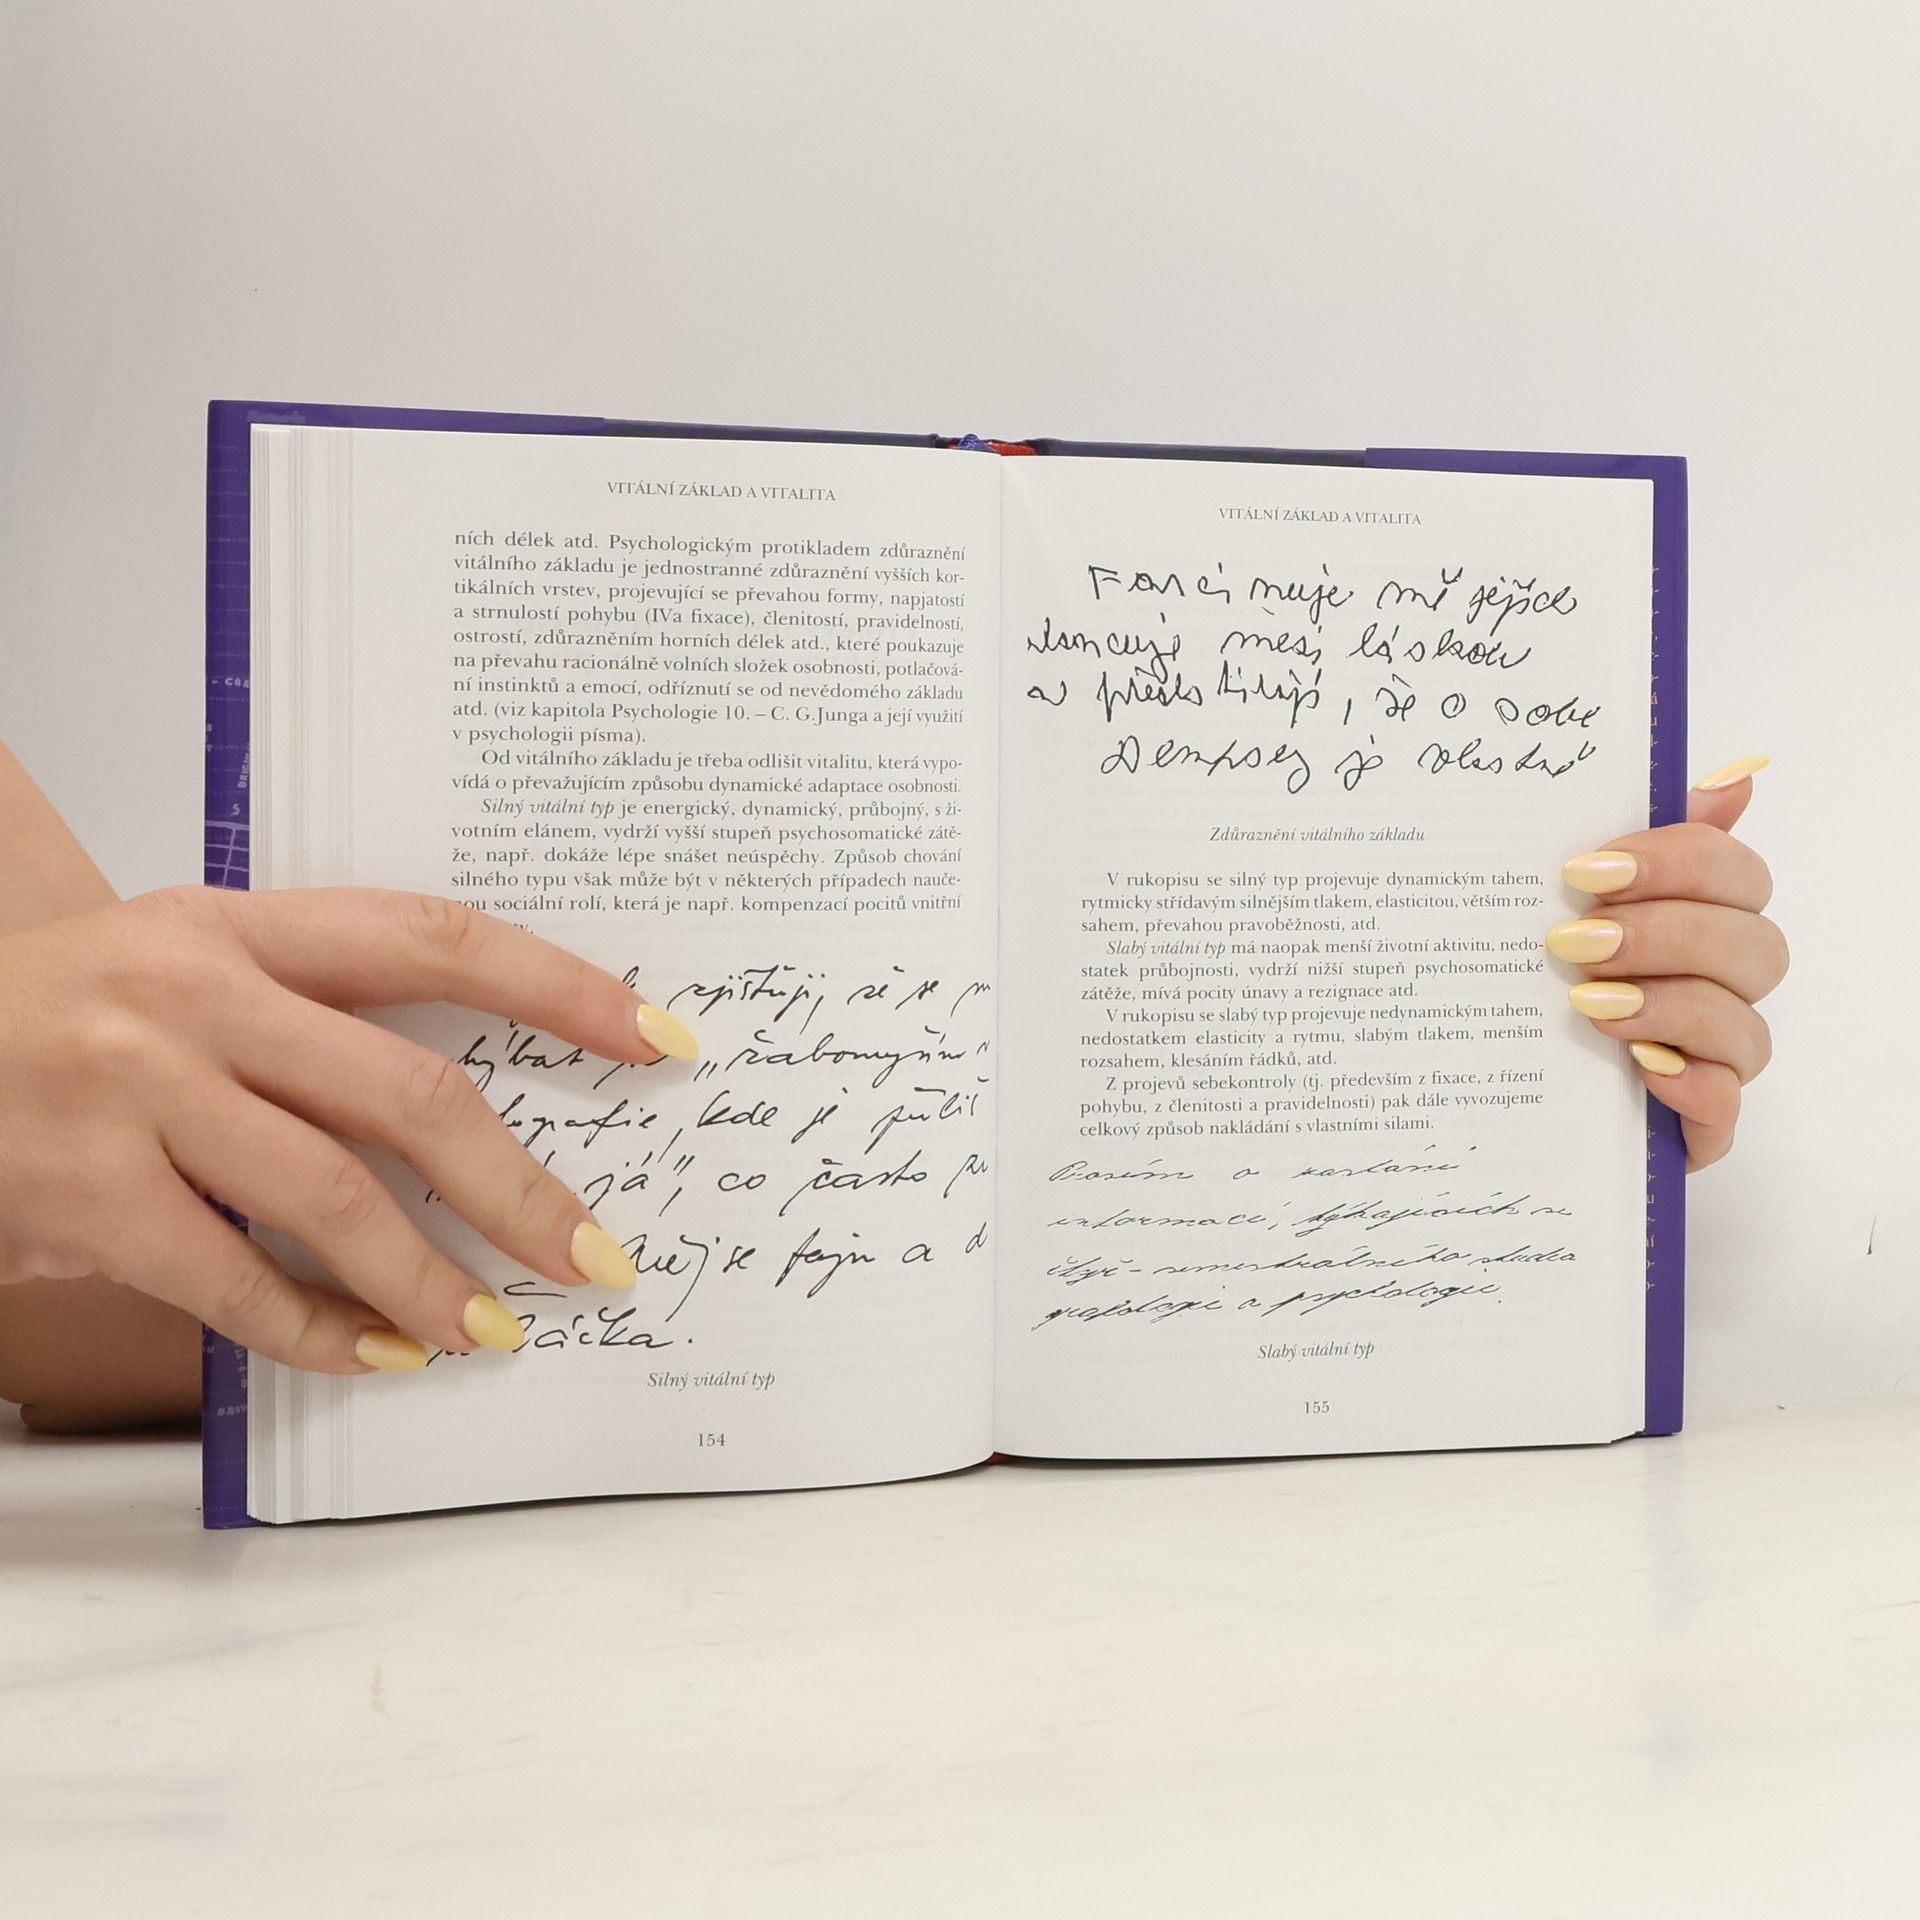 VITÁLNÍ ZÁKLAD A VITALITA
ních délek atd. Psychologickým protikladem zdůraznění
vitálního základu je jednostranné zdůraznění vyšších kor-
tikálních vrstev, projevující se převahou formy, napjatostí
a strnulostí pohybu (IVa fixace), členitostí, pravidelností,
ostrostí, zdůrazněním horních délek atd., které poukazuje
na převahu racionálně volních složek osobnosti, potlačová-
ní instinktů a emocí, odříznutí se od nevědomého základu
atd. (viz kapitola Psychologie 10. – C. G. Junga a její využití
v psychologii písma).
Od vitálního základu je třeba odlišit vitalitu, která vypo-
vídá o převažujícím způsobu dynamické adaptace osobnosti.
Silný vitální typ je energický, dynamický, průbojný, s ži-
votním elánem, vydrží vyšší stupeň psychosomatické zátě-
že, např. dokáže lépe snášet neúspěchy. Způsob chování
silného typu však může být v některých případech nauče-
nou sociální rolí, která je např. kompenzací pocitů vnitřní
zjišťuji, že se
hýbat „žabomyším
kde je příliš
já", co často
Měj se fajn a
Káčka.
Silný vitální typ
154
VITÁLNÍ ZÁKLAD A VITALITA
Fascinuje mě jejich
mezi láskou
a , že o sobě
Dempsey je vlastně
Zdůraznění vitálního základu
V rukopisu se silný typ projevuje dynamickým tahem,
rytmicky střídavým silnějším tlakem, elasticitou, větším roz-
sahem, převahou pravoběžnosti, atd.
Slabý vitální typ má naopak menší životní aktivitu, nedo-
statek průbojnosti, vydrží nižší stupeň psychosomatické
zátěže, mívá pocity únavy a rezignace atd.
V rukopisu se slabý typ projevuje nedynamickým tahem,
nedostatkem elasticity a rytmu, slabým tlakem, menším
rozsahem, klesáním řádků, atd.
Z projevů sebekontroly (tj. především z fixace, z řízení
pohybu, z členitosti a pravidelnosti) pak dále vyvozujeme
celkový způsob nakládání s vlastními silami.
Prosím o zaslání
informací, týkajících se
čtyř-semestrálního studia
grafologie a psychologie.
Slabý vitální typ
155